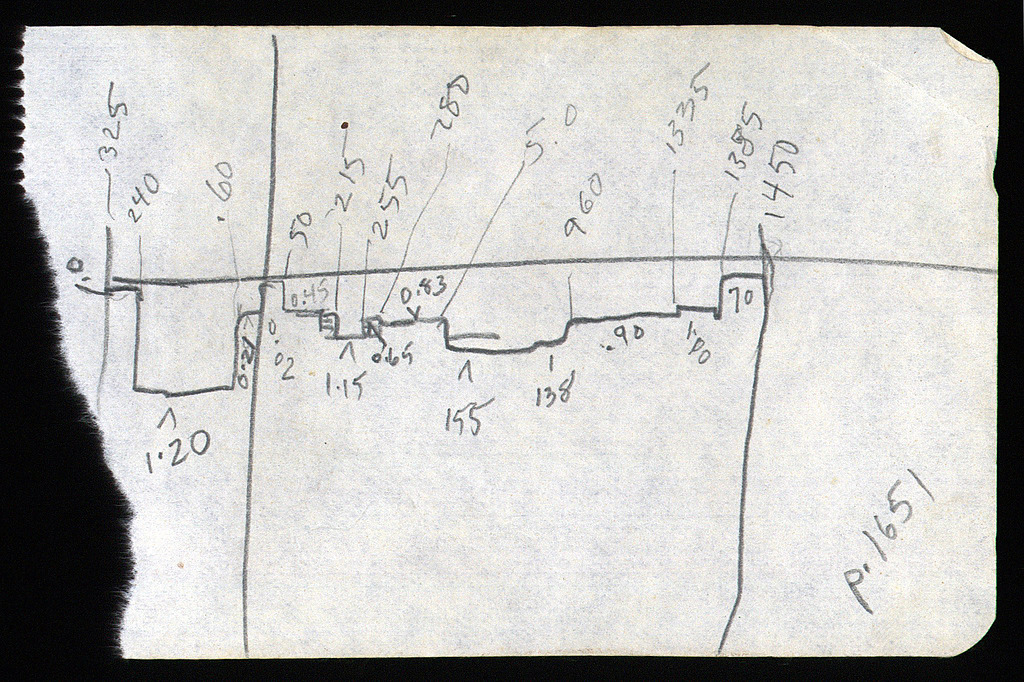 325
240
.60
50
215
255
280
5.0
960
1335
1385
1450
.0
0.45
0.83
70
0.21
0.0
02
1.15
0.65
155
138
.90
1.00
1.20
p.1651